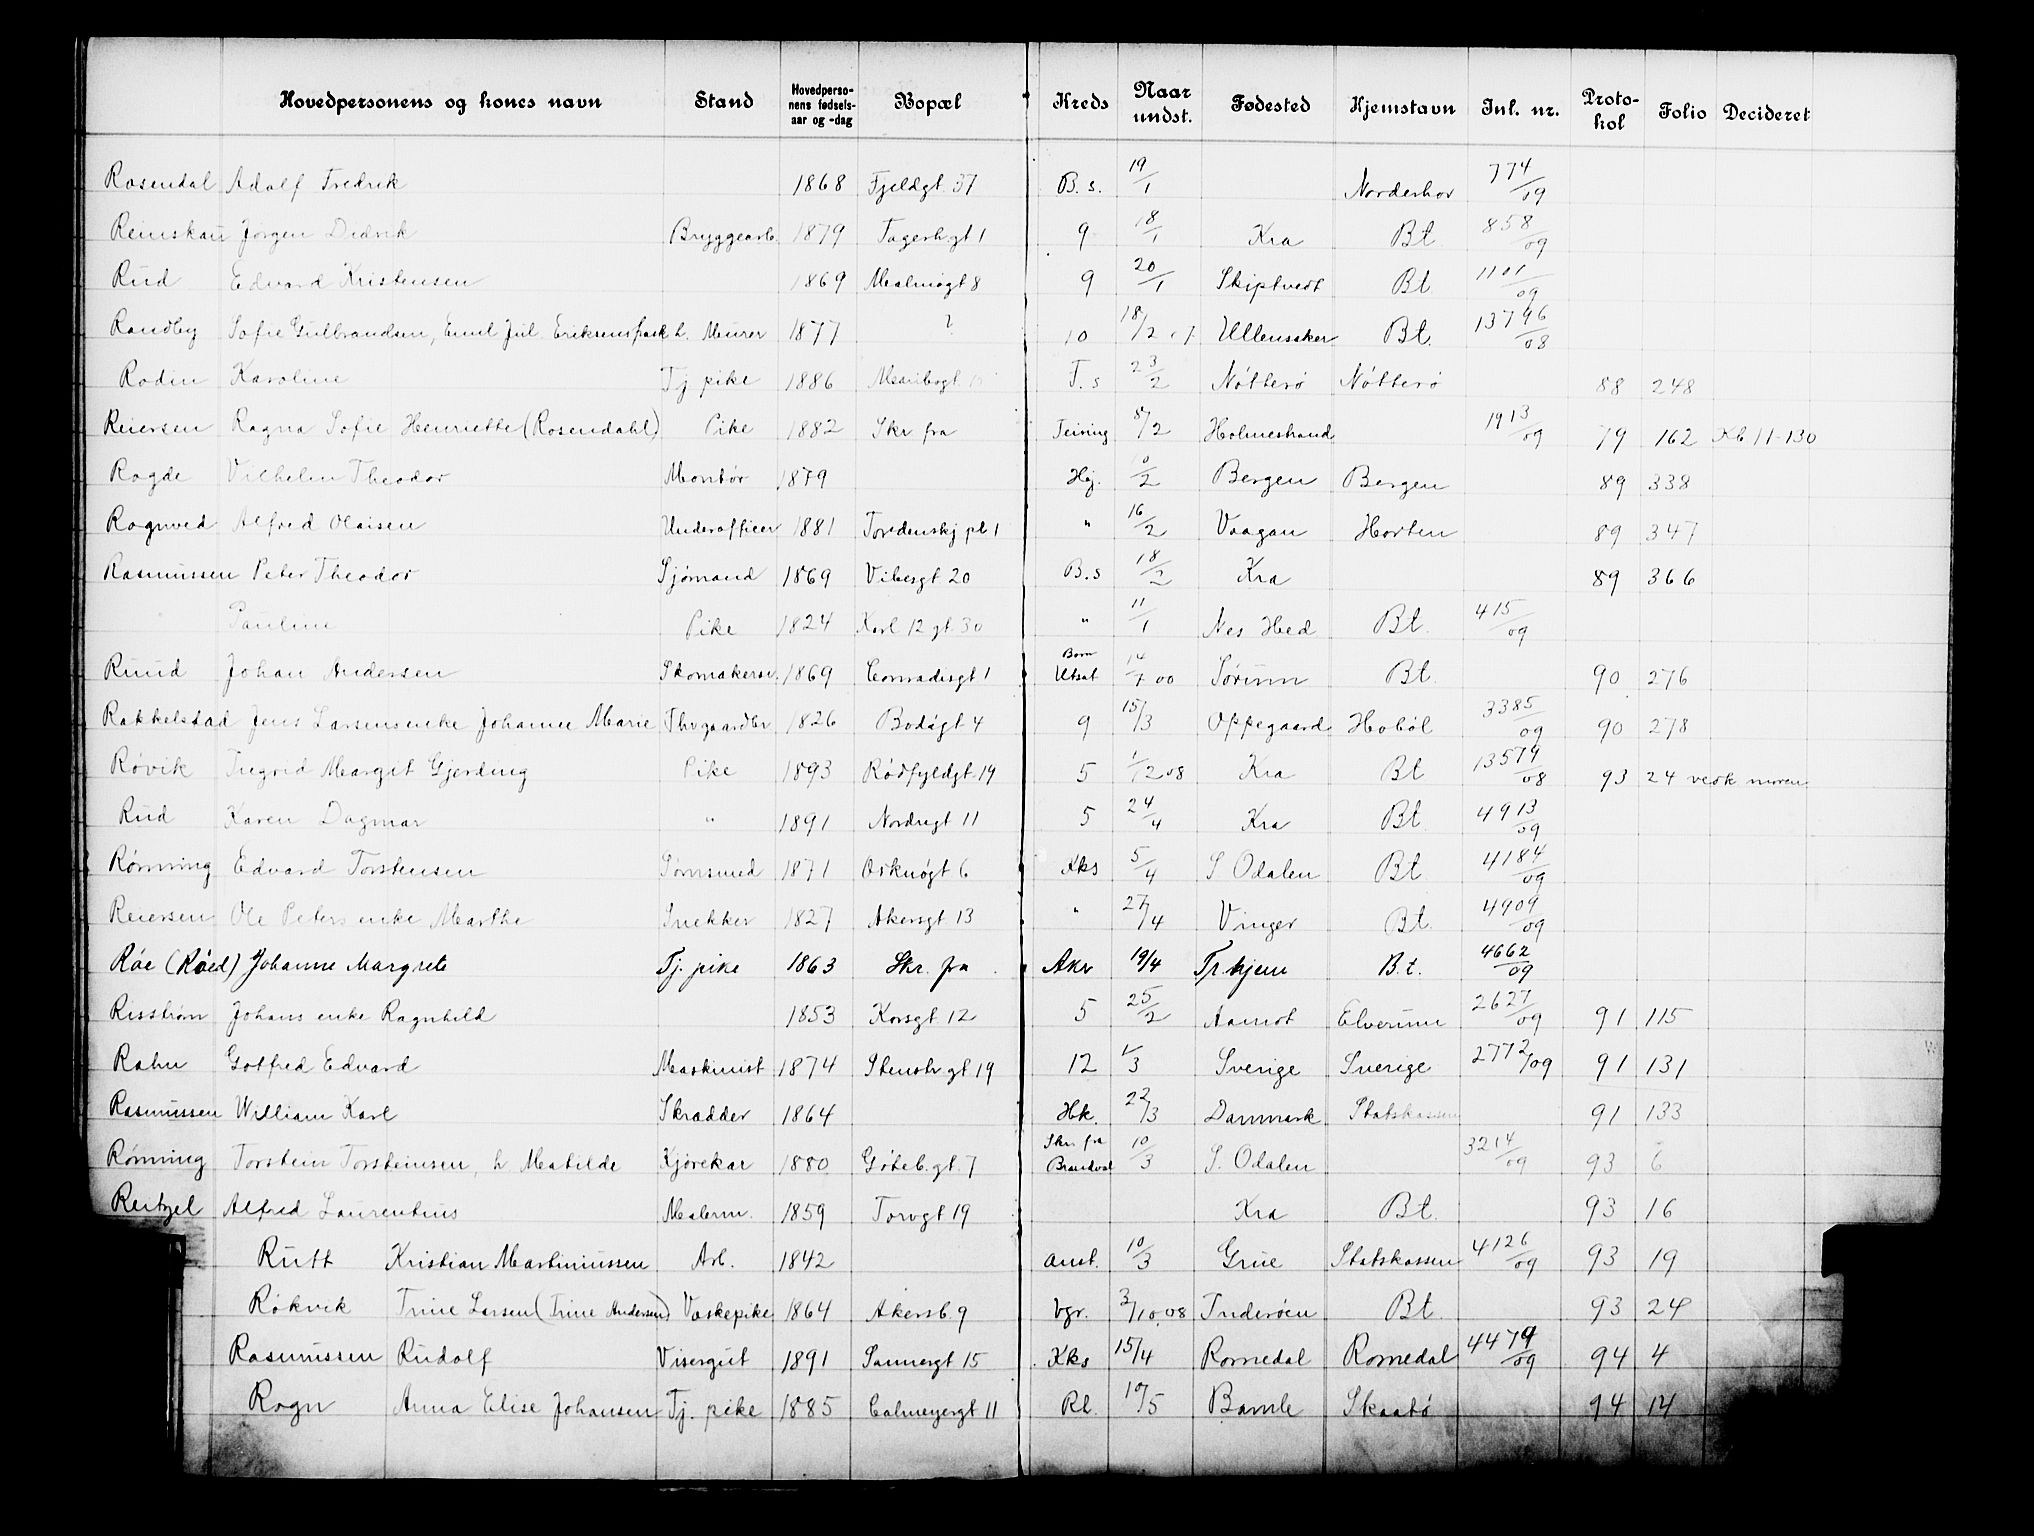 Hovedpersonens og kones navn Stand Hovedpersonens fødselsaar og -dag Bopæl Kreds Naar undst. Fødested Hjemstavn Inl. nr. Protokol Folio Decideret
Rosendal Adolf Fredrik 1868 Fjeldgt. 37 B. s. 19/1 Norderhov 774/09
Reinskau Jørgen Didrik Bryggearb. 1879 Tagerhgt 1 9 18/1 Kra Bt 858/09
Rud Edvard Kristensen 1869 Malmøgt 8 9 20/1 Skiptvedt Bt 1101/09
Randby Sofie Gulbrandsen, Emil Jul. Eriksens frask. h. Murer 1877 ? 10 18/2 Ullensaker Bt. 13796/08
Rodin Karoline Tj pike 1886 Maribogt T. s 23/2 Nötterö Nötterö 88 248
Reiersen Ragna Sofie Henriette (Rosendahl) Pike 1882 Skr fra Teining 8/2 Holmestrand 1913/09 79 162 Kb 11-130
Rogde Vilhelm Theodor Montør 1879 Hgj. 10/2 Bergen Bergen 89 338
Rognved Alfred Olaisen Underofficer 1881 Tordenskj pl 1 " 16/2 Vaagan Horten 89 347
Rasmussen Peter Theodor Sjømand 1869 Vibesgt 20 B.s 18/2 Kra 89 366
Pauline Pike 1824 Karl 12 gt 30 " 11/1 Nes Hed Bt. 415/09
Ruud Johan Andersen Skomakersv. 1869 Conradisgt 1 Born Utsat 14/7 00 Sørum Bt. 90 276
Rakkelstad Jens Larsens enke Johanne Marie Thvgaardbr 1826 Bodøgt 4 9 15/3 Oppegaard Hobøl 3385/09 90 278
Røvik Ingrid Margit Gjerding Pike 1893 Rødfyldgt 19 5 1/12 08 Kra Bt 13579/08 93 24 vedk moren
Rud Karen Dagmar " 1891 Nordregt 11 5 24/4 Kra Bt. 4913/09
Rønning Edvard Torstensen Sømsmed 1871 Osknøgt 6 Kks 5/4 S Odalen Bt 4184/09
Reiersen Ole Peters enke Marthe Snekker 1827 Akersgt 13 " 27/4 Vinger Bt. 4909/09
Røe (Røed) Johanne Margrete Tj. pike 1863 Skr. fra Aker 19/4 Tr.hjem B. t. 4662/09
Risstrøm Johans enke Ragnhild 1853 Korsgt 12 5 25/2 Aamot Elverum 2627/09 91 115
Rahn Gotfred Edvard Maskinist 1874 Stenstr gt 19 12 1/3 Sverige Sverige 2772/09 91 131
Rasmussen William Karl Skrædder 1864 Hk. 22/3 Danmark Statskassen 91 133
Rønning Torstein Torsteinsen, h Matilde Kjørekar 1880 Göteb. gt. 7 Skr. fra Brandval 10/3 S. Odalen 3214/09 93 6
Reitzel Alfred Laurentius Malerm. 1859 Torvgt 19 Kra Bt. 93 16
Rutt Kristian Martiniussen Arb. 1842 anst. 10/3 Grue Statskassen 4126/09 93 19
Røkvik Trine Larsen (Trine Andersen) Vaskepike 1864 Akersb. 9 Vgr. 3/10.08 Inderøen Bt. 93 24
Rasmussen Rudolf Visergut 1891 Sannergt 15 Kks 15/4 Romedal Romedal 4479/09 94 4
Rogn Anna Elise Johansen Tj. pike 1885 Calmeyergt 11 Rl. 10/5 Bamle Skaatø 94 14